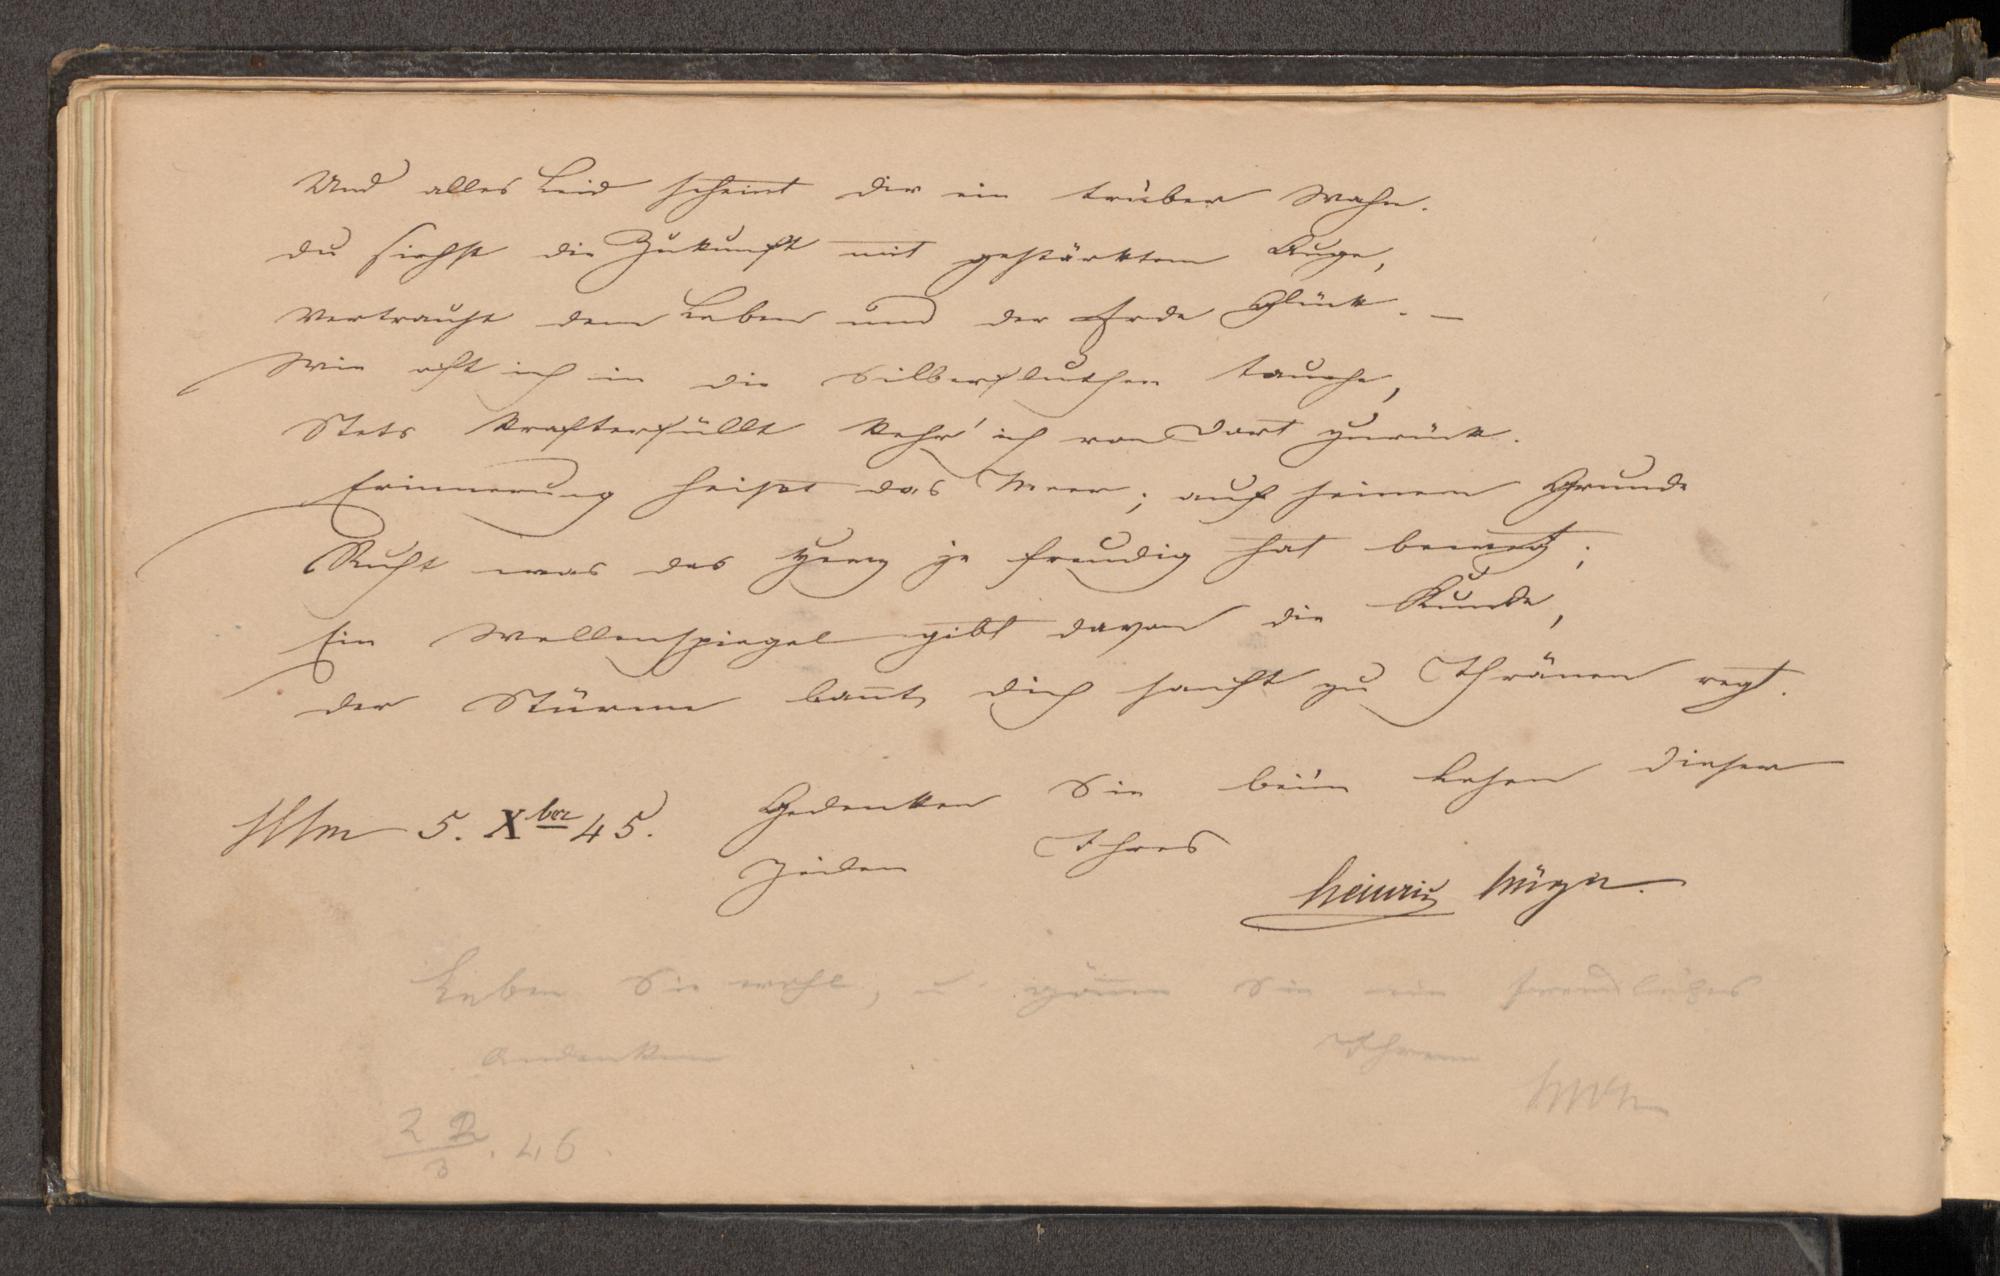 Und alles Leid scheint dir ein trüber Wahn.
Du siehst die Zukunft mit gestärktem Auge,
Vertraust dem Leben und der Erde Glück. —
Wie oft ich in die Silberfluthen tauche,
Stets krafterfüllt kehr' ich von dort zurück.
Erinnerung heißt das Meer; auf seinem Grunde
Ruht was das Herz je freudig hat bewegt;
Ein Wellenspiegel gibt davon die Kunde,
Der Stürme bannt, dich sanft zu Thränen regt.
Gedenken Sie beim Lesen dieser
Ulm 5. Xber 45.
Zeilen Ihres
Heinrich
Leben Sie wohl, u. gönnen Sie ein freundliches
Andenken Ihrem
2 2/3. 46.